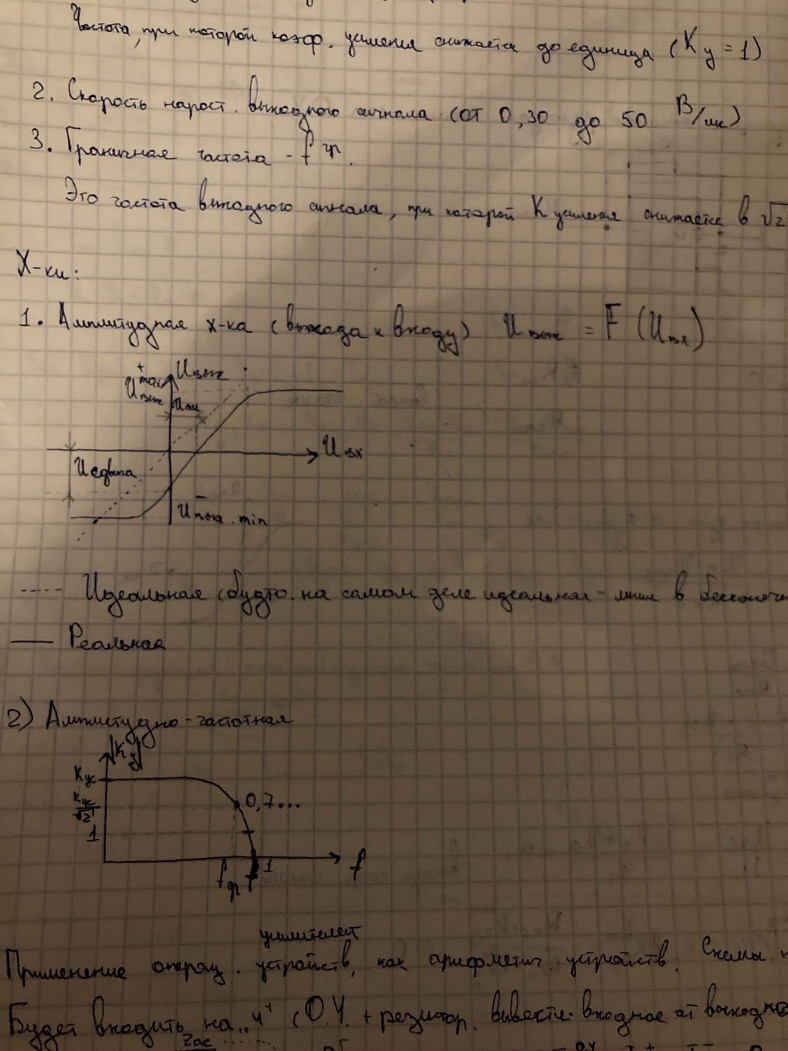 Частота, при которой коэф. усиления снижается до единица (Kу = 1)
2. Скорость нараст. выходного сигнала (от 0,30 до 50 В/мк)
3. Граничная частота - fгр.
Это частота выходного сигнала, при которой K усиления снижается в √2
Х-ки:
1. Амплитудная х-ка (выхода к входу) Uвых = F (Uвх)
Uвых
U+вых max
Uвх
Uсдвига
U- min
---- Идеальная (будто. на самом деле идеальная - линия в
— Реальная
2) Амплитудно-частотная
|Kу|
Kус
Kус/√2
0,7...
1
fгр
1
f
усилителей
Применение операц. устройств, как арифметич. устройств. Схемы
Будет входить на „Ч“ (О.У. + резистор. вывести входное от